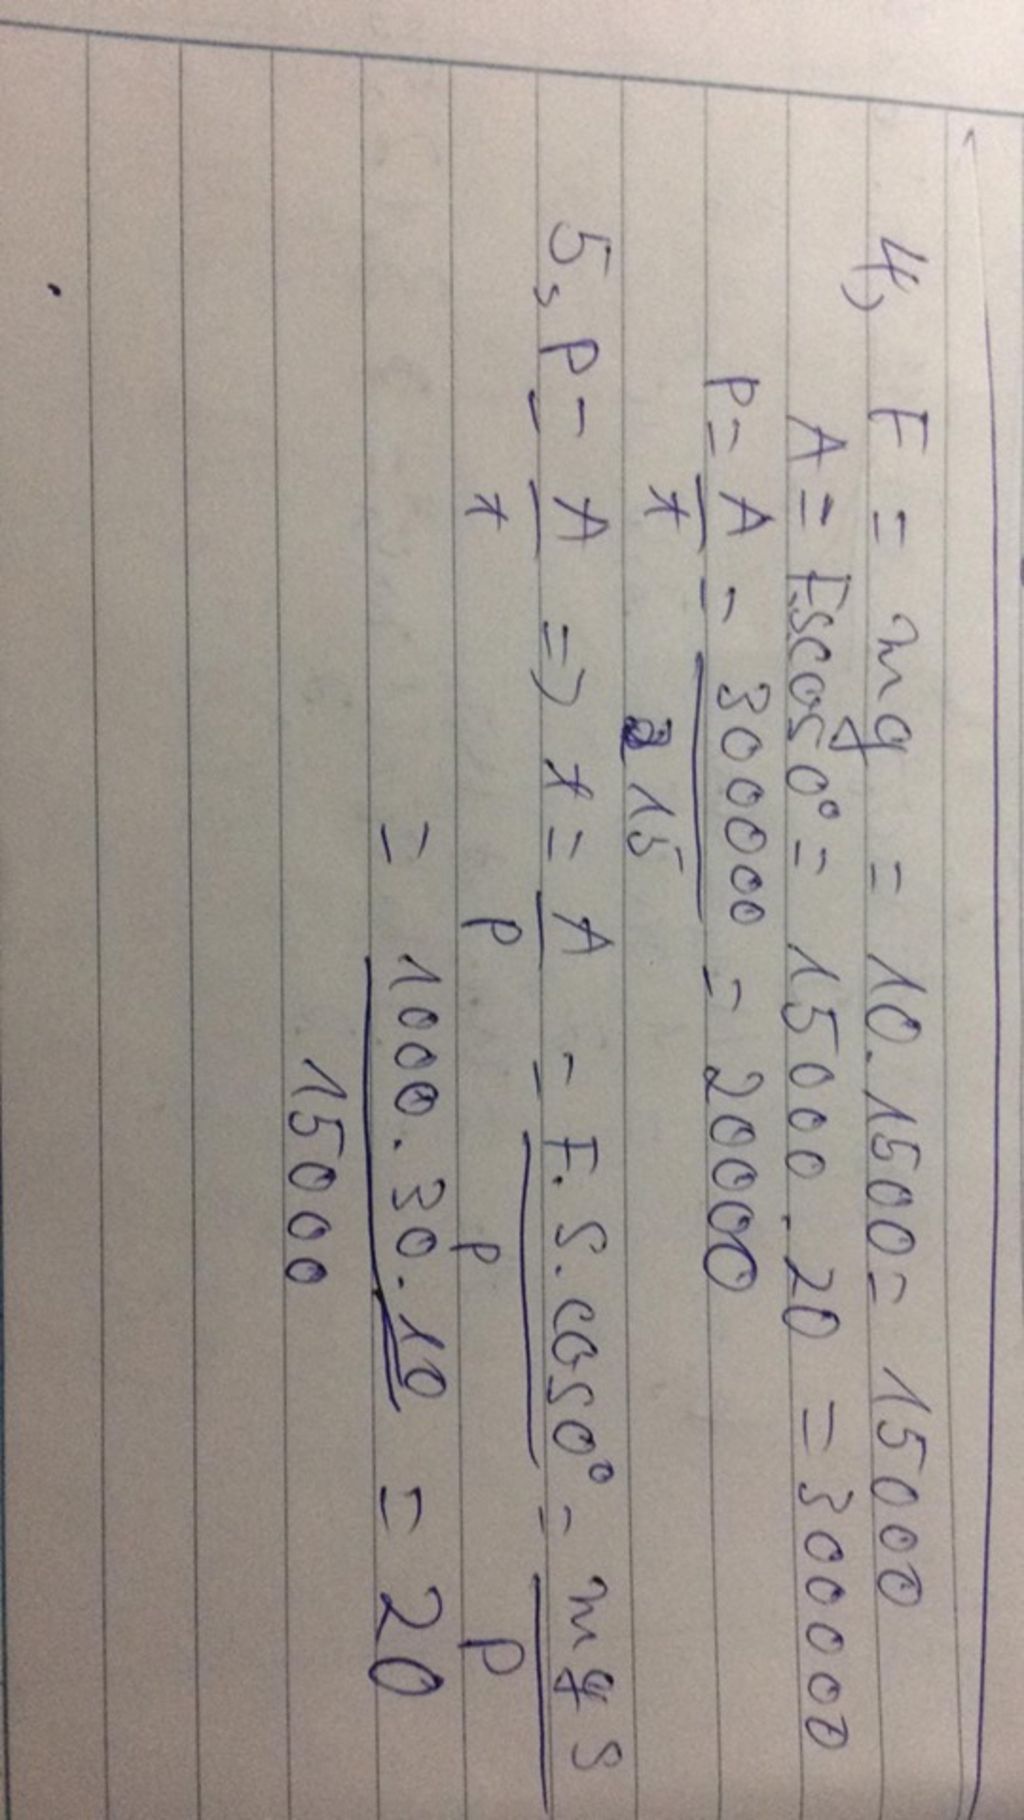 4, F = mg = 10.1500 = 15000
A = Fscos0° = 15000.20 = 300000
P = A = 300000 = 20000
t 15
5, P = A => t = A = F.S.cos0° = mgS
t P P P
= 1000.30.10 = 20
15000